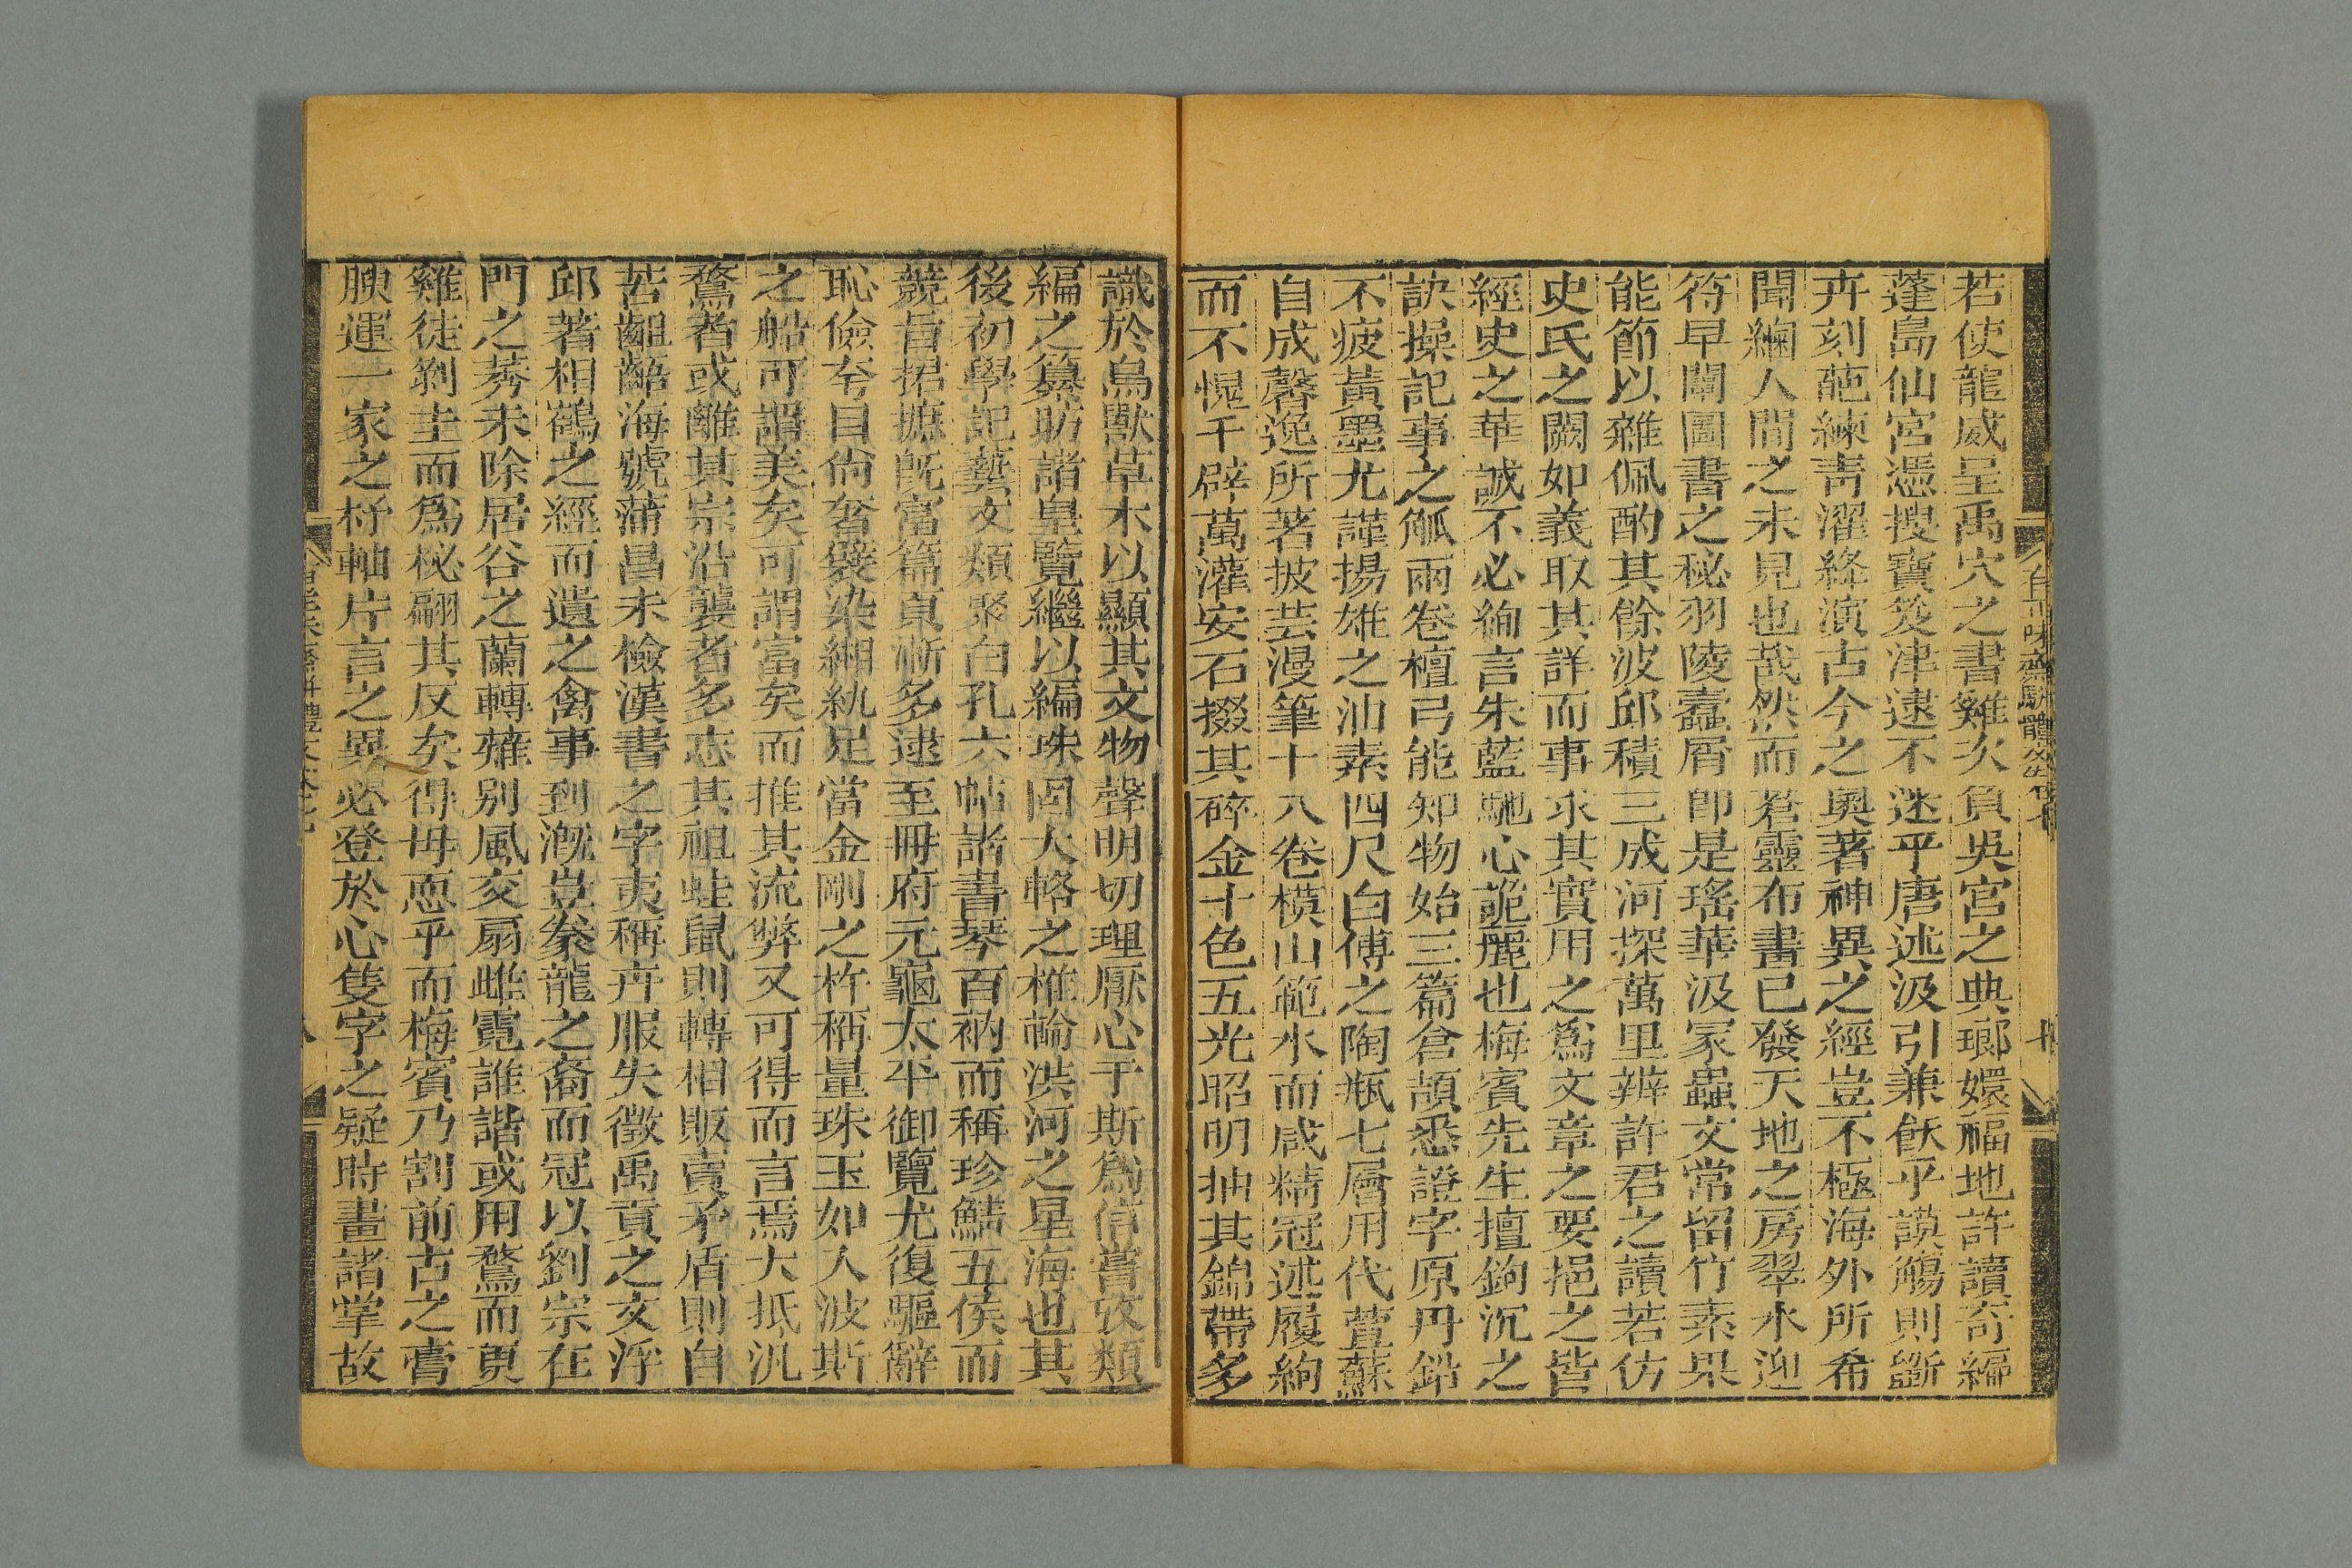 若使龍威呈禹穴之書雞次負吳宮之典瑯嬛福地許讀奇編
蓬島仙宮憑搜寶笈津逮不迷乎唐述汲引兼飫乎謨觴則斷
卉刻葩練靑濯絳演古今之奧著神異之經豈不極海外所希
聞繝人間之未見也哉然而蒼靈布畫已發天地之房翠水迎
符早闡圖書之秘羽陵蠹屑卽是瑤華汲冢蟲文常留竹素果
能節以雜佩酌其餘波邱積三成河探萬里辨許君之讀若仿
史氏之闕如義取其詳而事求其實用之爲文章之要挹之皆
經史之華誠不必絢言朱藍馳心詭麗也梅賓先生擅鉤沉之
訣操記事之觚兩卷檀弓能知物始三篇倉頡悉證字原丹鉛
不疲黃墨尤謹揚雄之油素四尺白傅之陶瓶七層用代萱蘇
自成馨逸所著披芸漫筆十八卷模山範水而咸精冠述履絢
而不愰千辟萬灌安石掇其碎金十色五光昭明抽其錦帶多
識於鳥獸草木以顯其文物聲明切理厭心于斯爲信嘗攷類
編之纂昉諸皇覽繼以編珠固大輅之椎輪洪河之星海也其
後初學記藝文類聚白孔六帖諸書琴百衲而稱珍鯖五侯而
競旨捃摭旣富篇頁漸多逮至冊府元龜太平御覽尤復驅辭
恥儉夸目尙奢襞染緗紈足當金剛之杵稱量珠玉如入波斯
之船可謂美矣可謂富矣而推其流弊又可得而言焉大抵汎
騖者或離其宗沿襲者多忘其祖蛙鼠則轉相販賣矛盾則自
苦齟齬海號蒲昌未檢漢書之字夷稱卉服失徵禹貢之文浮
邱著相鶴之經而遺之禽事到溉豈豢龍之裔而冠以劉宗在
門之莠未除居谷之蘭轉薙別風交扇雌霓誰諧或用鶩而更
雞徒剝圭而爲柲翩其反矣得毋恧乎而梅賓乃割前古之膏
腴運一家之杼軸片言之異必登於心隻字之疑時畫諸掌故